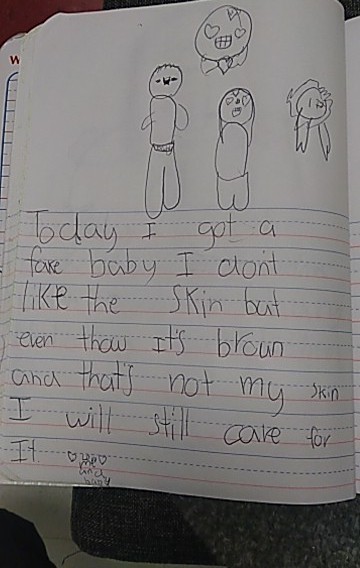 Today I got a
fake baby I don't
like the skin but
even thow It's broun
and that's not my skin
I will still care for
It ♡me♡
and
baby